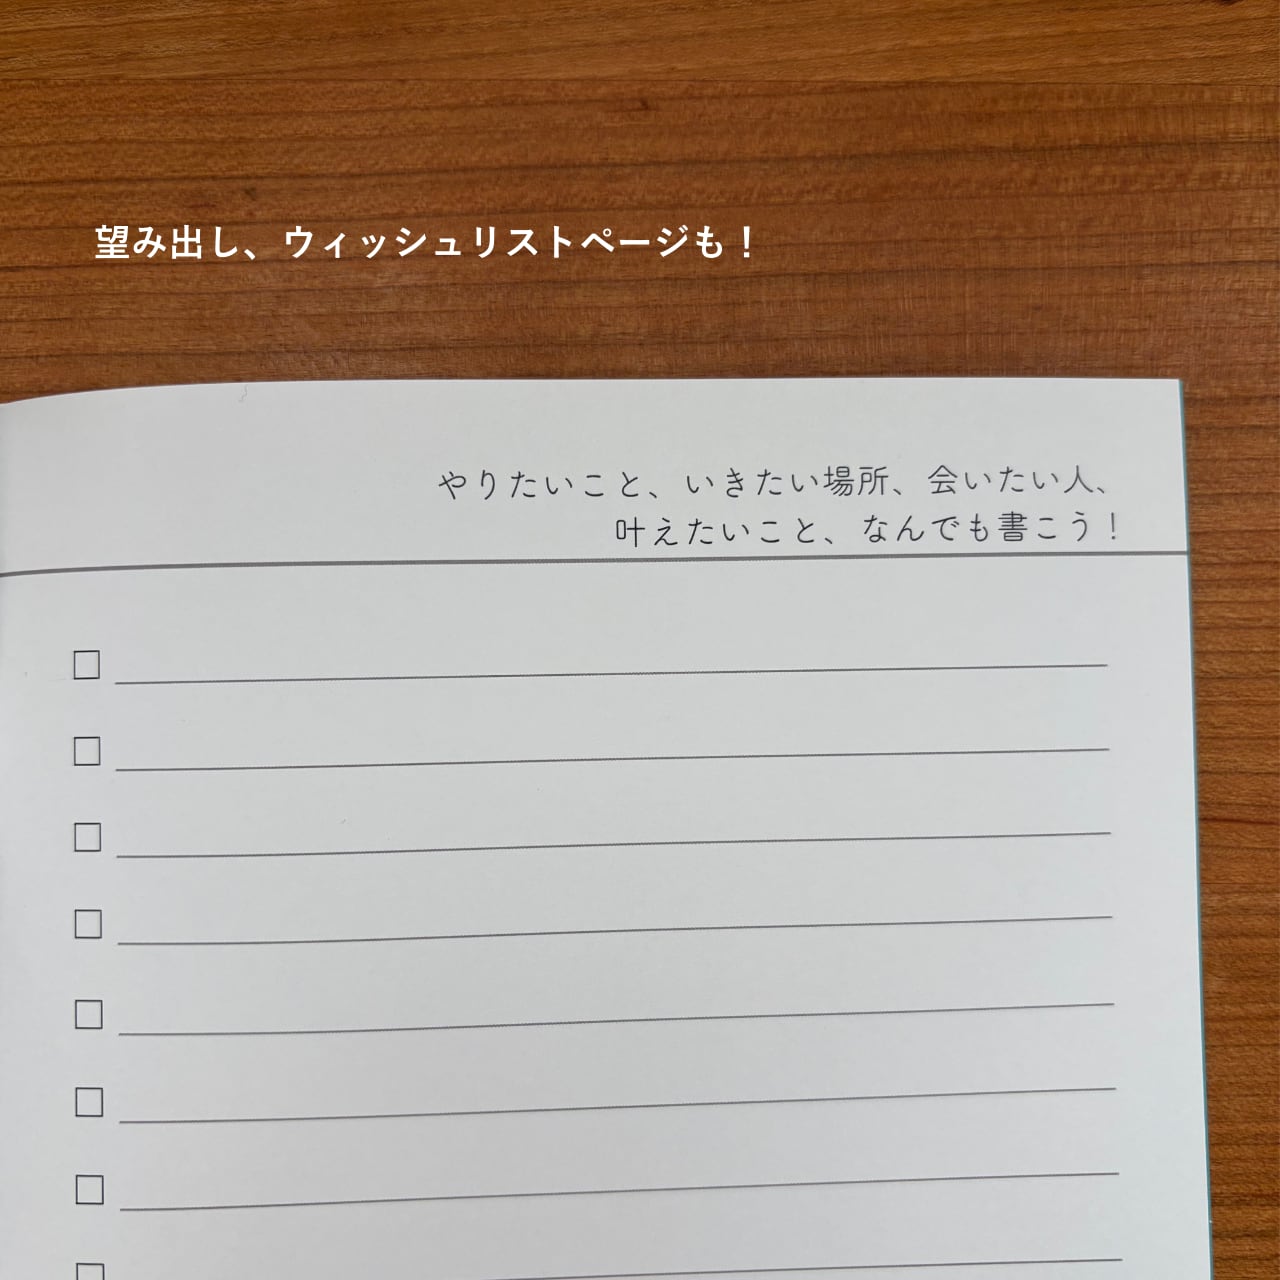 望み出し、ウィッシュリストページも！
やりたいこと、いきたい場所、会いたい人、
叶えたいこと、なんでも書こう！